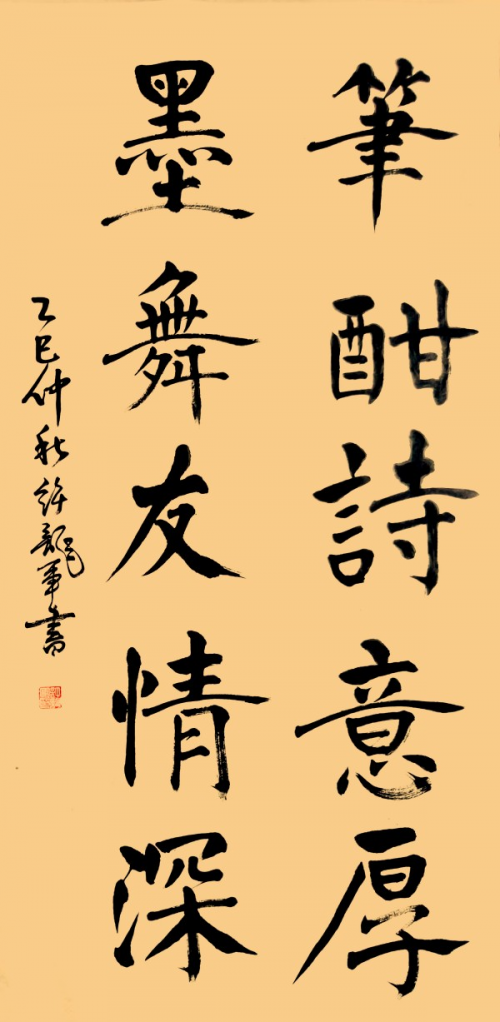 筆酣詩意厚
墨舞友情深
乙巳仲秋許龍軍書